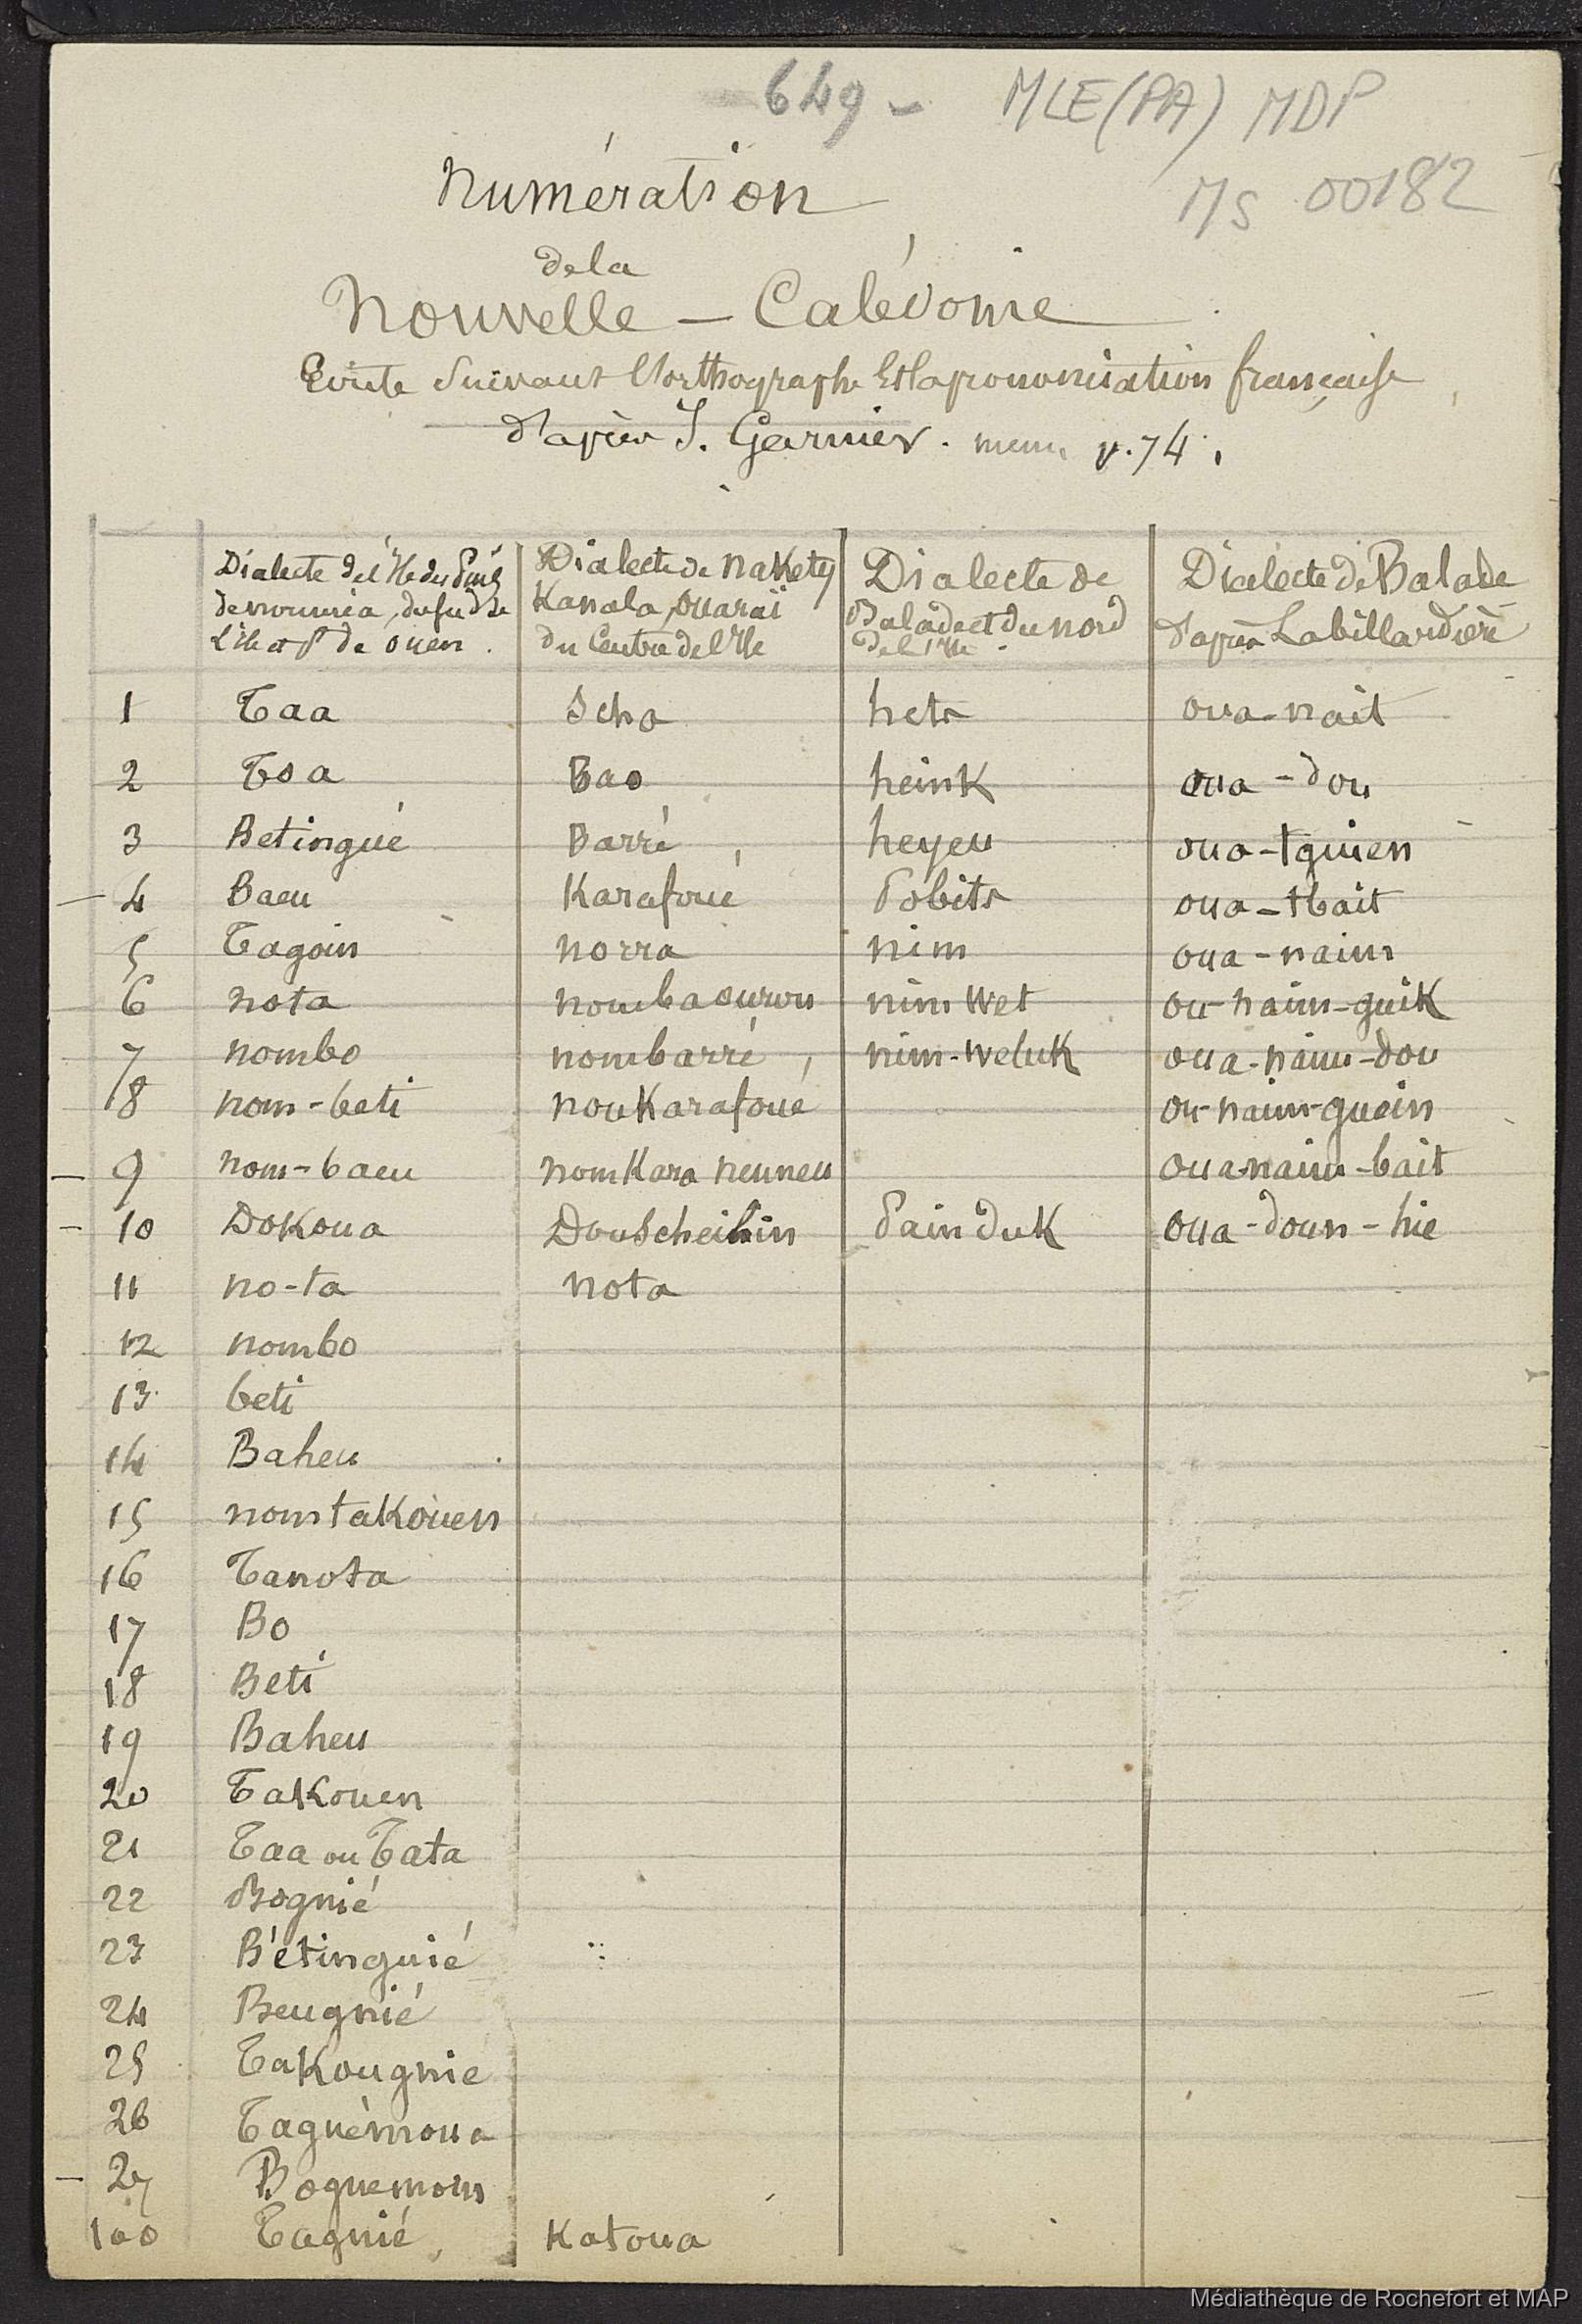 649 - MLE(PA) MDP
MS 00182
Numération
de la
Nouvelle - Calédonie
Ecrite suivant l'orthographe et la prononciation française
d'après J. Garnier. mem. p. 74.
Dialecte de l'Ile des Pins | Dialecte de Nakety | Dialecte de | Dialecte de Balade
de noumia, du sud de | Kanala, Ouaraï | Balade et du nord | d'après Labillardière
l'île et de ouen. | du Centre de l'Ile | de l'Ile.
1 Taa | Scha | hets | oua-nait
2 Toa | Bao | heink | oua-dou
3 Betingué | Barré | heyeu | oua-tguien
4 Baeu | Karafoué | Pobits | oua-tbait
5 Tagoin | norra | nim | oua-naim
6 nota | noumbaourou | nim wet | ou-naim-guik
7 nombo | nombarré | nim-weluk | oua-naim-dou
8 nom-beti | nouKarafoué | ou-naim-guein
9 nom-baeu | nomKara neuneu | oua-naim-bait
10 Dokoua | Douscheihin | Pain duk | oua-doun-hie
11 no-ta | nota
12 nombo
13 beti
14 Baheu
15 nomtakouen
16 Tanota
17 Bo
18 Beti
19 Baheu
20 Takouen
21 Taa ou Tata
22 Bognié
23 Bétinguié
24 Beugnié
25 Takougnie
26 Taguémoua
27 Boguemom
100 Tagnié | Katoua
Médiathèque de Rochefort et MAP